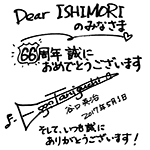 Dear ISHIMORI
のみなさま
66周年 誠に
おめでとうございます
Eiji Taniguchi
谷口英治
2017年5月1日
そして、いつも誠に
ありがとうございます!